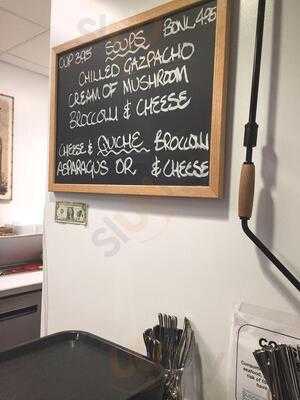 CUP 3.95 SOUPS BOWL 4.95
CHILLED GAZPACHO
CREAM OF MUSHROOM
BROCCOLI & CHEESE
CHEESE & QUICHE BROCCOLI
ASPARAGUS OR & CHEESE